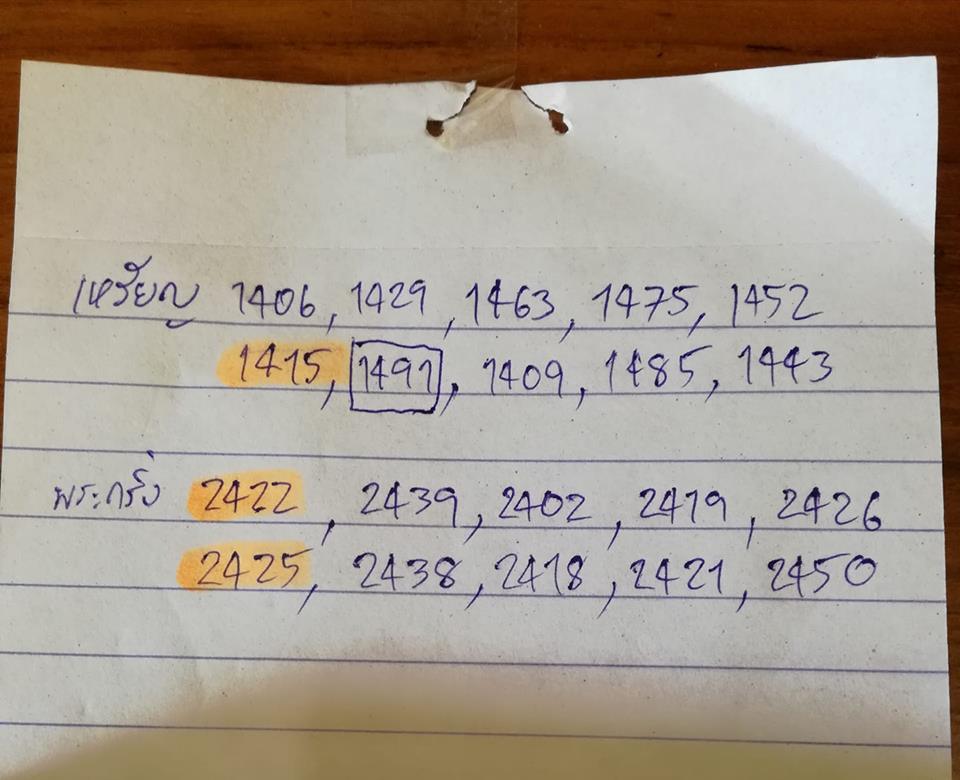 เหรียญ 1406, 1429, 1463, 1475, 1452
1415, 1491, 1409, 1485, 1443
พระกริ่ง 2422, 2439, 2402, 2419, 2426
2425, 2438, 2418, 2421, 2450